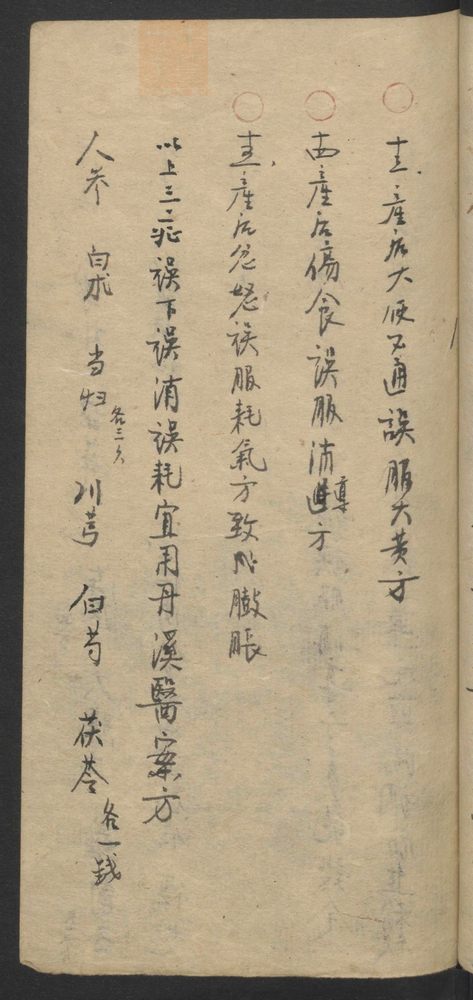 十三、產后大便不通誤服大黃方
十四產后傷食誤服消導方
十五、產后忿怒誤服耗氣方致成臌脹
以上三症誤下誤消誤耗宜用丹溪醫案方
人参 白朮 当归 各三 川芎 白芍 茯苓 各一錢